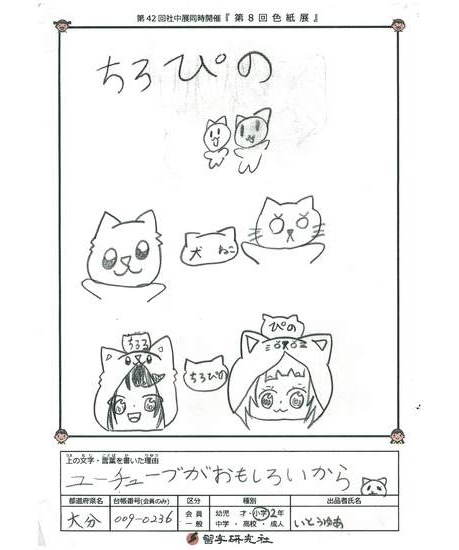 第42回社中展同時開催『第8回色紙展』
ちろぴの
犬 ねこ
ちろる
ぴの
ちろぴの
上の文字・言葉を書いた理由
ユーチューブがおもしろいから
都道府県名 台帳番号(会員のみ) 区分 種別 出品者氏名
大分 009-0236 会員 一般 幼児 才・小学2年 中学・高校・成人 いとうゆあ
習字研究社